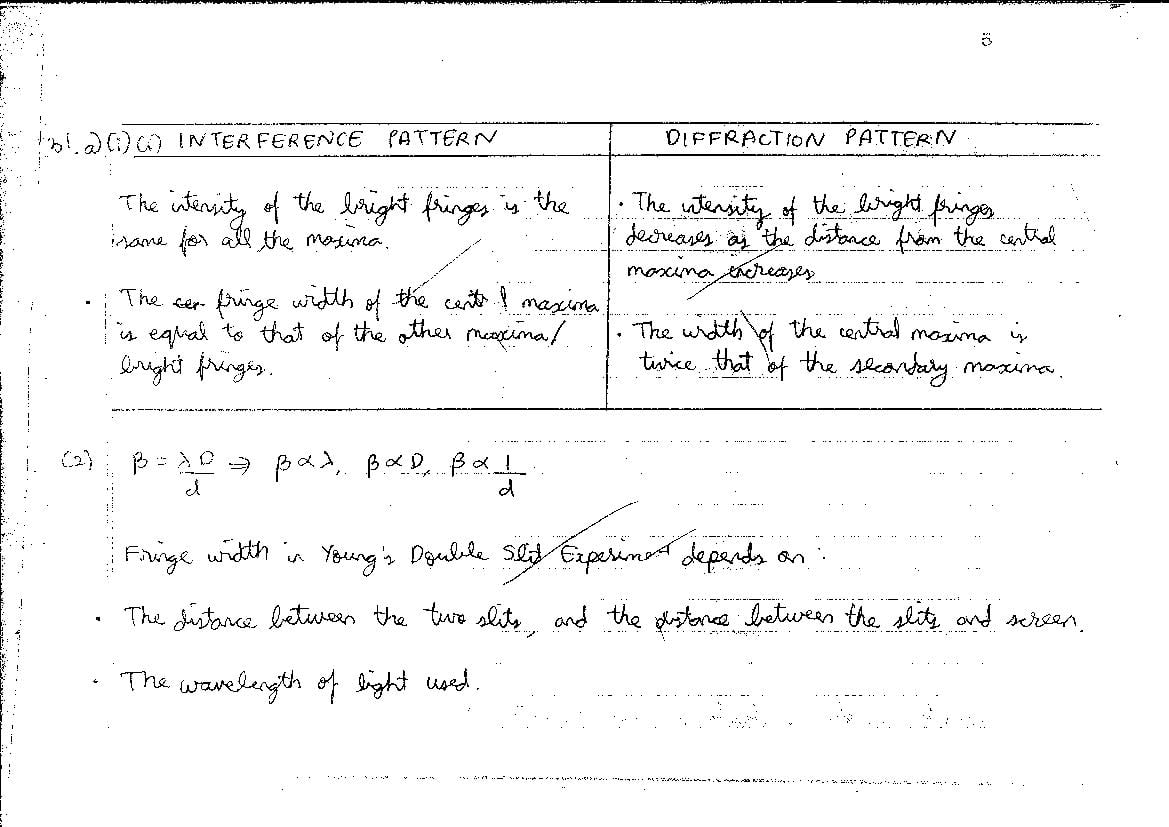 5
b1. a) (i) (i) INTERFERENCE PATTERN
DIFFRACTION PATTERN
The itensity of the bright fringes is the
same for all the maxima.
• The cen fringe width of the centrl maxima
is equal to that of the other maxima/
bright fringes.
• The itensity of the bright fringes
decreases as the distance from the central
maxima increases
• The width of the central maxima is
twice that of the secondary maxima.
(2) β = λD/d ⇒ β ∝ λ, β ∝ D, β ∝ 1/d
Fringe width in Young's Double Slit Experiment depends on :
• The distance between the two slits, and the distance between the slits and screen.
• The wavelength of light used.